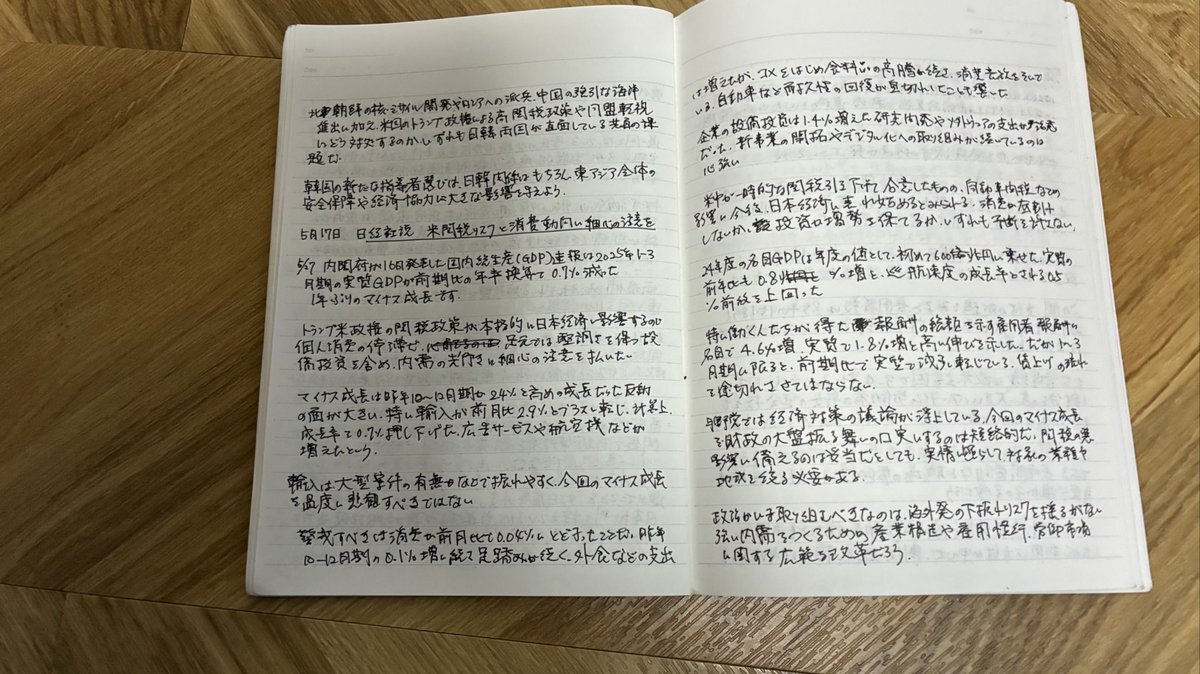 北朝鮮の核・ミサイル開発やロシアへの派兵、中国の強引な海洋
進出に加え、米国のトランプ政権による高関税政策や同盟軽視
にどう対処するのか。いずれも日韓両国が直面している共通の課
題だ。
韓国の新たな指導者選びは、日韓関係はもちろん、東アジア全体の
安全保障や経済協力に大きな影響を与えよう。
5月17日 日経社説 米関税リスクと消費動向に細心の注意を
5/17 内閣府が16日発表した国内総生産(GDP)速報は2025年1-3
月期の実質GDPが前期比の年率換算で0.7%減った
1年ぶりのマイナス成長です。
トランプ米政権の関税政策が本格的に日本経済に影響するのは
個人消費の停滞や、足元では堅調さを保つ設
備投資を含め、内需の先行きに細心の注意を払いたい
マイナス成長は昨年10〜12月期が2.4%と高めの成長だった反動
の面が大きい。特に輸入が前月比2.9%とプラスに転じ、計算上、
成長率で0.7%押し下げた。広告サービスや航空機などが
増えたという。
輸入は大型案件の有無などで振れやすく、今回のマイナス成長
を過度に悲観すべきではない
警戒すべきは消費が前月比で0.04%にとどまったことだ。昨年
10-12月期の0.1%増に続て足踏みが続く。外食などの支出
は増えたが、コメをはじめ食料品の高騰が続き、消費意欲をそいで
いる。自動車など耐久性の回復が息切れしたことも響いた
企業の設備投資は1.4%増えた研究開発やソフトウェアの支出が活発
だった。新事業の開拓やデジタル化への取り組みが続いているのは
心強い
米中が一時的な関税引き下げで合意したものの、自動車関税などの
影響は今後、日本経済に表れ始めるとみられる。消費が腰折れ
しないか、投資は増勢を保てるか、いずれも予断を許さない。
24年度の名目GDPは年度の値として初めて600兆円に乗せた。実質の
前年比も0.8%増と、巡航速度の成長率とされる0.5
%前後を上回った
特に働く人たちが得た報酬の総額を示す雇用者報酬は
名目で4.6%増、実質で1.8%増と高い伸びを示した。だが1〜3
月期に限ると、前期比で実質で減少に転じている。賃上げの流れ
を途切れさせてはならない。
与野党では経済対策の議論が浮上している。今回のマイナス成長
を財政の大盤振る舞いの口実にするのは短絡的だ。関税の悪
影響に備えるのは妥当だとしても、実情に照らして対象の業種や
地域を絞る必要がある。
政治がいま取り組むべきなのは、海外発の下振れリスクも揺るがない
強い内需をつくるための産業構造や雇用慣行、労働市場
に関する広範な改革だろう